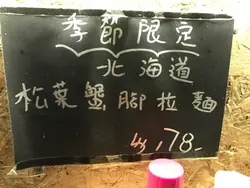 季節限定
北海道
松葉蟹腳拉麵
$78.-